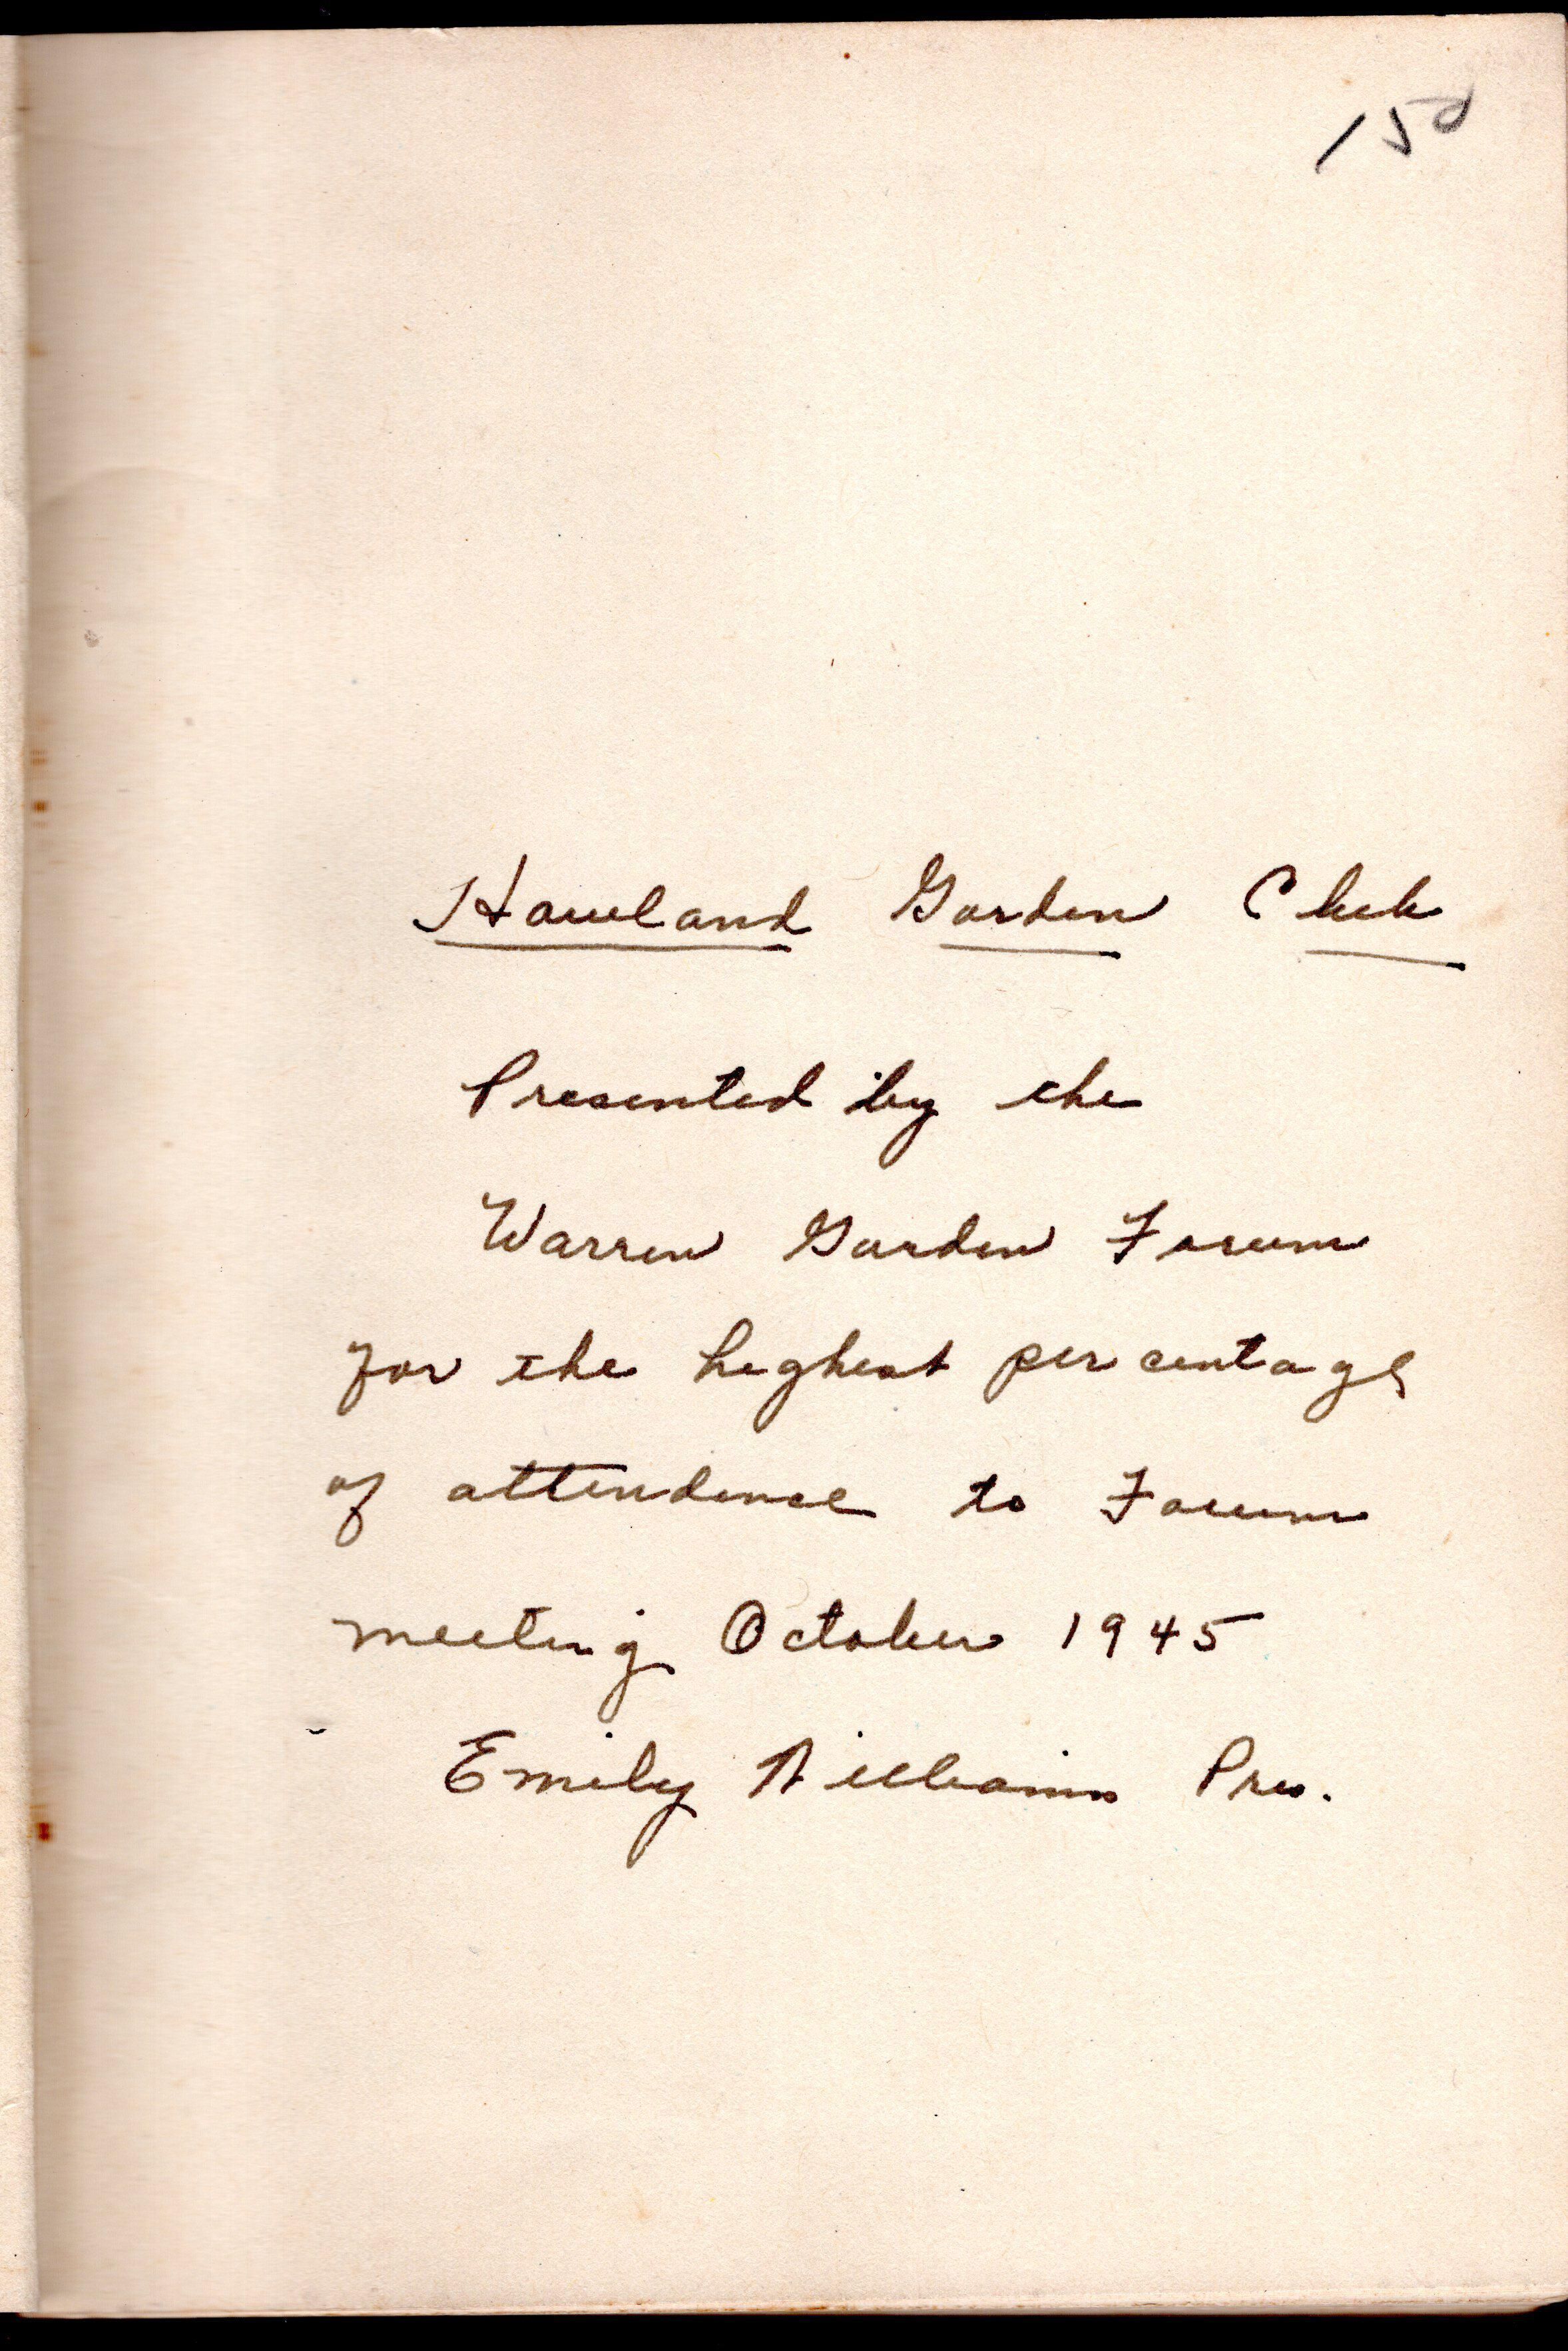 150
Howland Garden Club
Presented by the
Warren Garden Forum
for the highest percentage
of attendence to Forum
meeting October 1945
Emily Williams Pres.